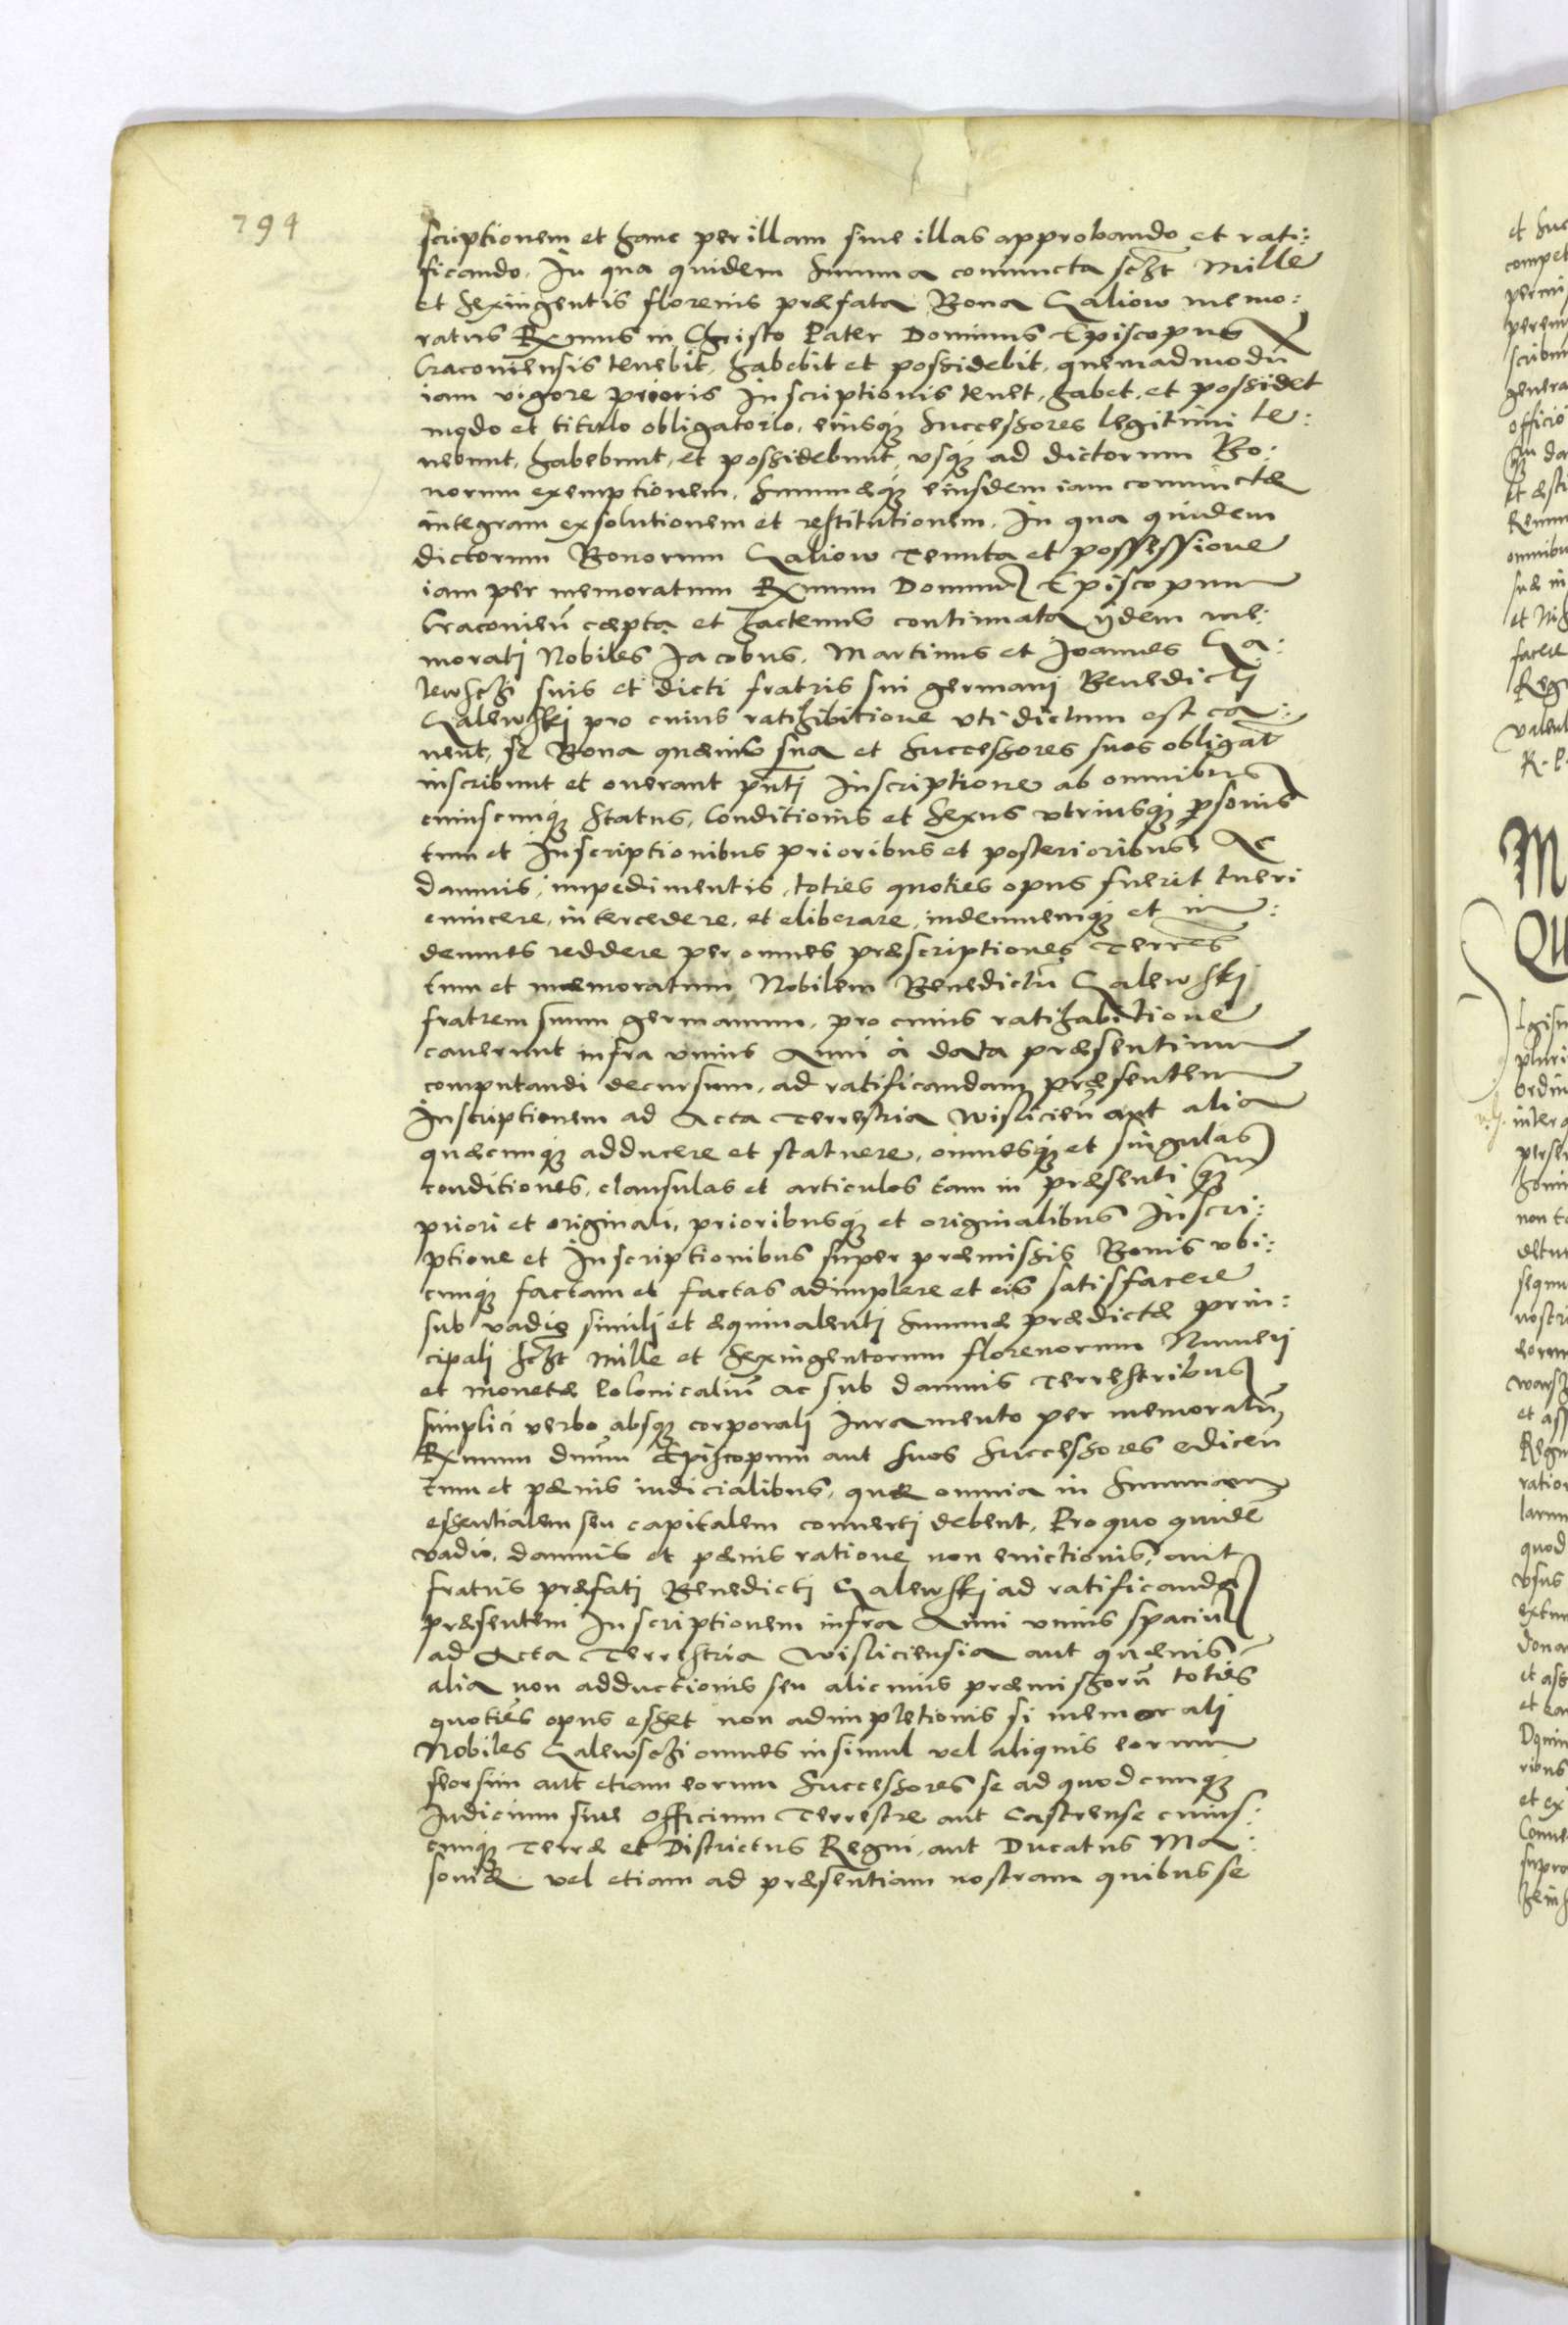 794
scriptionem et hanc per illam siue illas approbando et rati:
ficando. In qua quidem Summa coniuncta sczt Mille
et Sexingentis florenis præfata Bona Galiow memo:
ratus Rxmus in Christo Pater Dominus Episcopus
Cracouiensis tenebit, habebit et possidebit, quemadmodū
iam vigore prioris Inscriptionis tenet, habet, et possidet
modo et titulo obligatorio, eiusq; Successores legitimi te:
nebunt, habebunt, et possidebunt, vsq; ad dictorum Bo:
norum exemptionem, Summæq; eiusdem iam coniunctæ
integram exsolutionem et restitutionem. In qua quidem
dictorum Bonorum Galiow Tenuta et possessione
iam per memoratum Rxmum Dominū Episcopum
Cracouieñ cæpta et hactenus continuata ijdem me:
morati Nobiles Jacobus, Martinus et Joannes Ga:
lewsczi suis et dicti fratris sui germani Benedicti
Galewski pro cuius ratihibitione vti dictum est ca:
uent, se Bona quæuis sua et Successores suos obligāt
inscribunt et onerant pñti Inscriptione ab omnibus
cuiuscunq; Status, Conditionis et Sexus vtriusq; psonis
tum et Inscriptionibus prioribus et posterioribus, Ac
damnis, impedimentis, toties quoties opus fuerit tueri
euincere, intercedere, et eliberare, indemnemq; et in:
demnes reddere per omnes præscriptiones Terr̄es
tum et mæmoratum Nobilem Benedictū Galewski
fratrem suum germanum, pro cuius ratihabitione
cauerunt infra vnius Anni à data præsentium
computandi decursum, ad ratificandam præsentem
Inscriptionem ad Acta Terrestria Wislicieñ aut alia
quæcunq; adducere et statuere, omnesq; et singulas
conditiones, clausulas et articulos tam in præsenti qm
priori et originali, prioribusq; et originalibus Inscri:
ptione et Inscriptionibus super præmissis Bonis vbi:
cunq; factam et factas adimplere et eis satisfacere
sub vadio simili et æquiualenti Summæ prædictæ prin:
cipali sczt Mille et Sexingentorum florenorum Numeri
et monetæ Polonicaliū ac sub damnis Terrestribus
simplici verbo absq; corporali Iuramento per memoratū
Rxmum dnūm Episcopum aut suos Successores edicen
tum et pænis iudicialibus, quæ omnia in Summam
essentialem seu capitalem conuerti debent. Pro quo quidē
vadio, damnis et pænis ratione non euictionis, aut
fratris præfati Benedicti Galewski ad ratificandā
præsentem Inscriptionem infra Anni vnius spaciū
ad Acta Terrestria Wisliciensia aut quæuis
alia non adductionis seu alicuius præmissorū toties
quoties opus esset non adimpletionis si memorati
Nobiles Galewsczi omnes insimul vel aliquis eorum
seorsim aut etiam eorum Successores se ad quodcunq;
Iudicium siue Officium Terrestre aut Castrense cuius:
cunq; Terræ et Districtus Regni, aut Ducatus Ma:
souiæ vel etiam ad præsentiam nostram quibus se